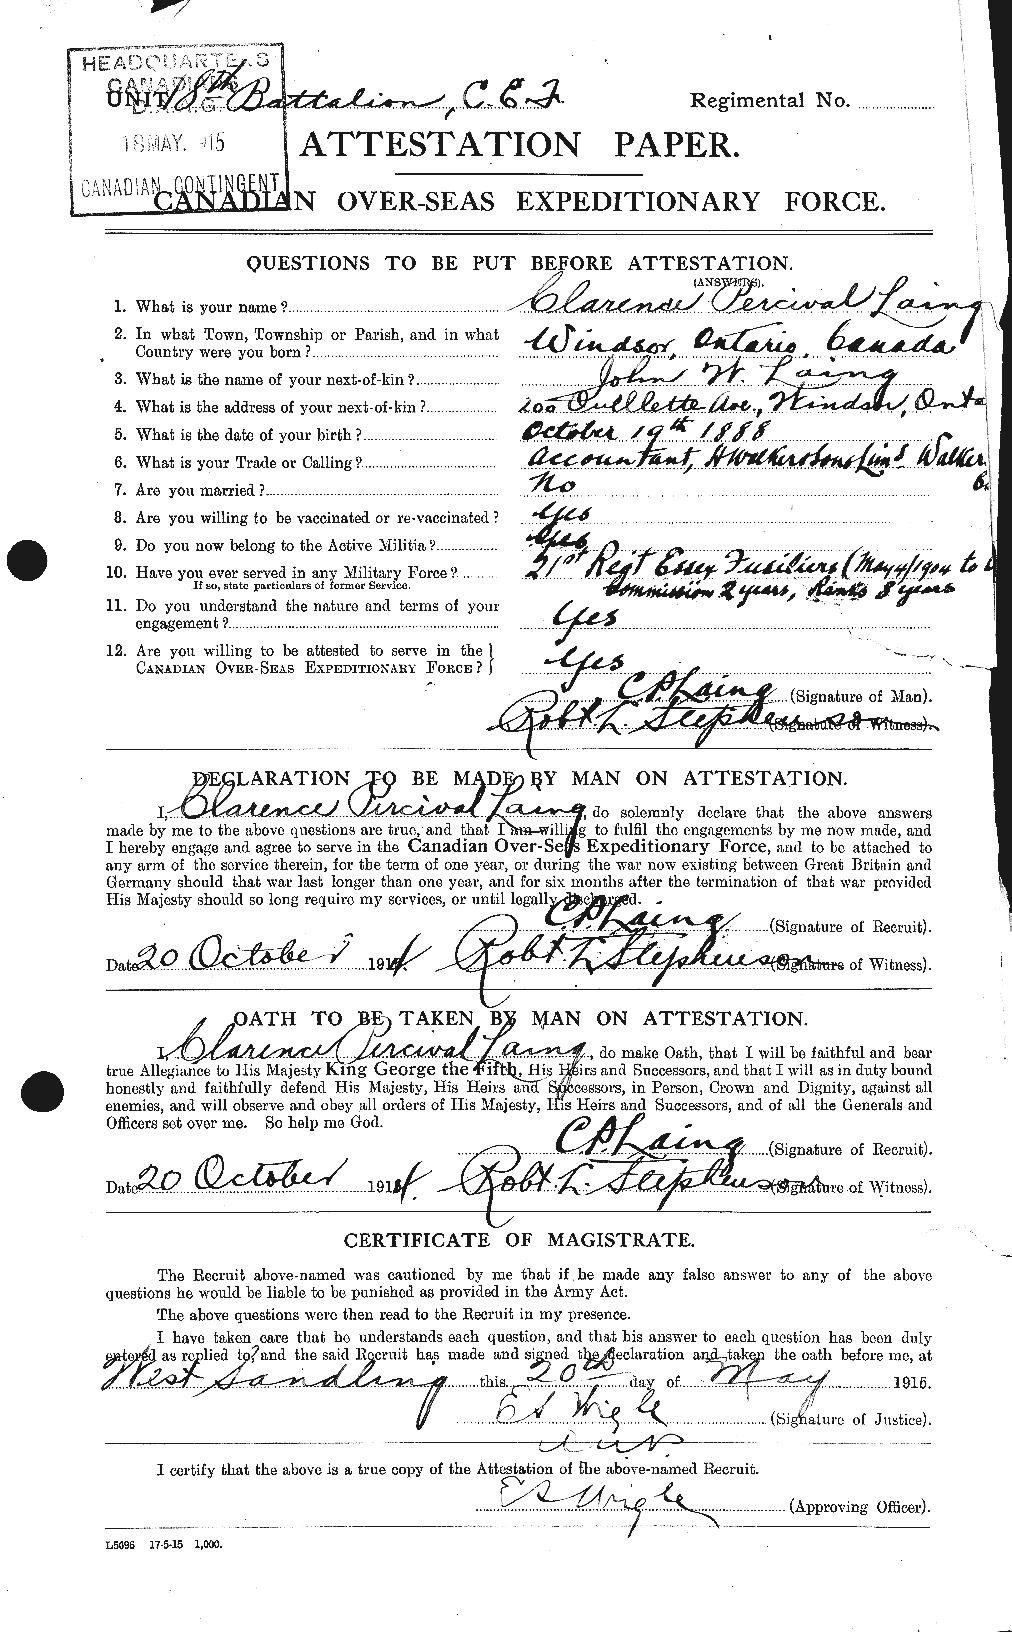 HEADQUARTERS
CANADIAN
UNIT 18th Battalion, C.E.F.
Regimental No.
18 MAY. 1915
CANADIAN CONTINGENT
ATTESTATION PAPER.
CANADIAN OVER-SEAS EXPEDITIONARY FORCE.
QUESTIONS TO BE PUT BEFORE ATTESTATION.
(ANSWERS).
1. What is your name? Clarence Percival Laing
2. In what Town, Township or Parish, and in what
Country were you born? Windsor, Ontario, Canada
3. What is the name of your next-of-kin? John W. Laing
4. What is the address of your next-of-kin? 200 Ouellette Ave., Windsor, Onta
5. What is the date of your birth? October 19th 1888
6. What is your Trade or Calling? Accountant, H Walker & Sons Lim'd Walker
7. Are you married? No
8. Are you willing to be vaccinated or re-vaccinated? Yes
9. Do you now belong to the Active Militia? Yes
10. Have you ever served in any Military Force? 21st Reg't Essex Fusiliers (May 4/1904 to
If so, state particulars of former Service. Commission 2 years, Ranks 8 years
11. Do you understand the nature and terms of your
engagement? Yes
12. Are you willing to be attested to serve in the
CANADIAN OVER-SEAS EXPEDITIONARY FORCE? Yes
C P Laing (Signature of Man).
Robt L. Stephenson (Signature of Witness).
DECLARATION TO BE MADE BY MAN ON ATTESTATION.
I, Clarence Percival Laing, do solemnly declare that the above answers
made by me to the above questions are true, and that I am willing to fulfil the engagements by me now made, and
I hereby engage and agree to serve in the Canadian Over-Seas Expeditionary Force, and to be attached to
any arm of the service therein, for the term of one year, or during the war now existing between Great Britain and
Germany should that war last longer than one year, and for six months after the termination of that war provided
His Majesty should so long require my services, or until legally discharged.
C P Laing (Signature of Recruit).
Date 20 October 1914. Robt L Stephenson (Signature of Witness).
OATH TO BE TAKEN BY MAN ON ATTESTATION.
I, Clarence Percival Laing, do make Oath, that I will be faithful and bear
true Allegiance to His Majesty King George the Fifth, His Heirs and Successors, and that I will as in duty bound
honestly and faithfully defend His Majesty, His Heirs and Successors, in Person, Crown and Dignity, against all
enemies, and will observe and obey all orders of His Majesty, His Heirs and Successors, and of all the Generals and
Officers set over me. So help me God.
C P Laing (Signature of Recruit).
Date 20 October 1914. Robt L. Stephenson (Signature of Witness).
CERTIFICATE OF MAGISTRATE.
The Recruit above-named was cautioned by me that if he made any false answer to any of the above
questions he would be liable to be punished as provided in the Army Act.
The above questions were then read to the Recruit in my presence.
I have taken care that he understands each question, and that his answer to each question has been duly
entered as replied to, and the said Recruit has made and signed the declaration and taken the oath before me, at
West Sandling this 20th day of May 1915.
E S Wigle (Signature of Justice).
I certify that the above is a true copy of the Attestation of the above-named Recruit.
E S Wigle (Approving Officer).
L5096 17-5-15 1,000.